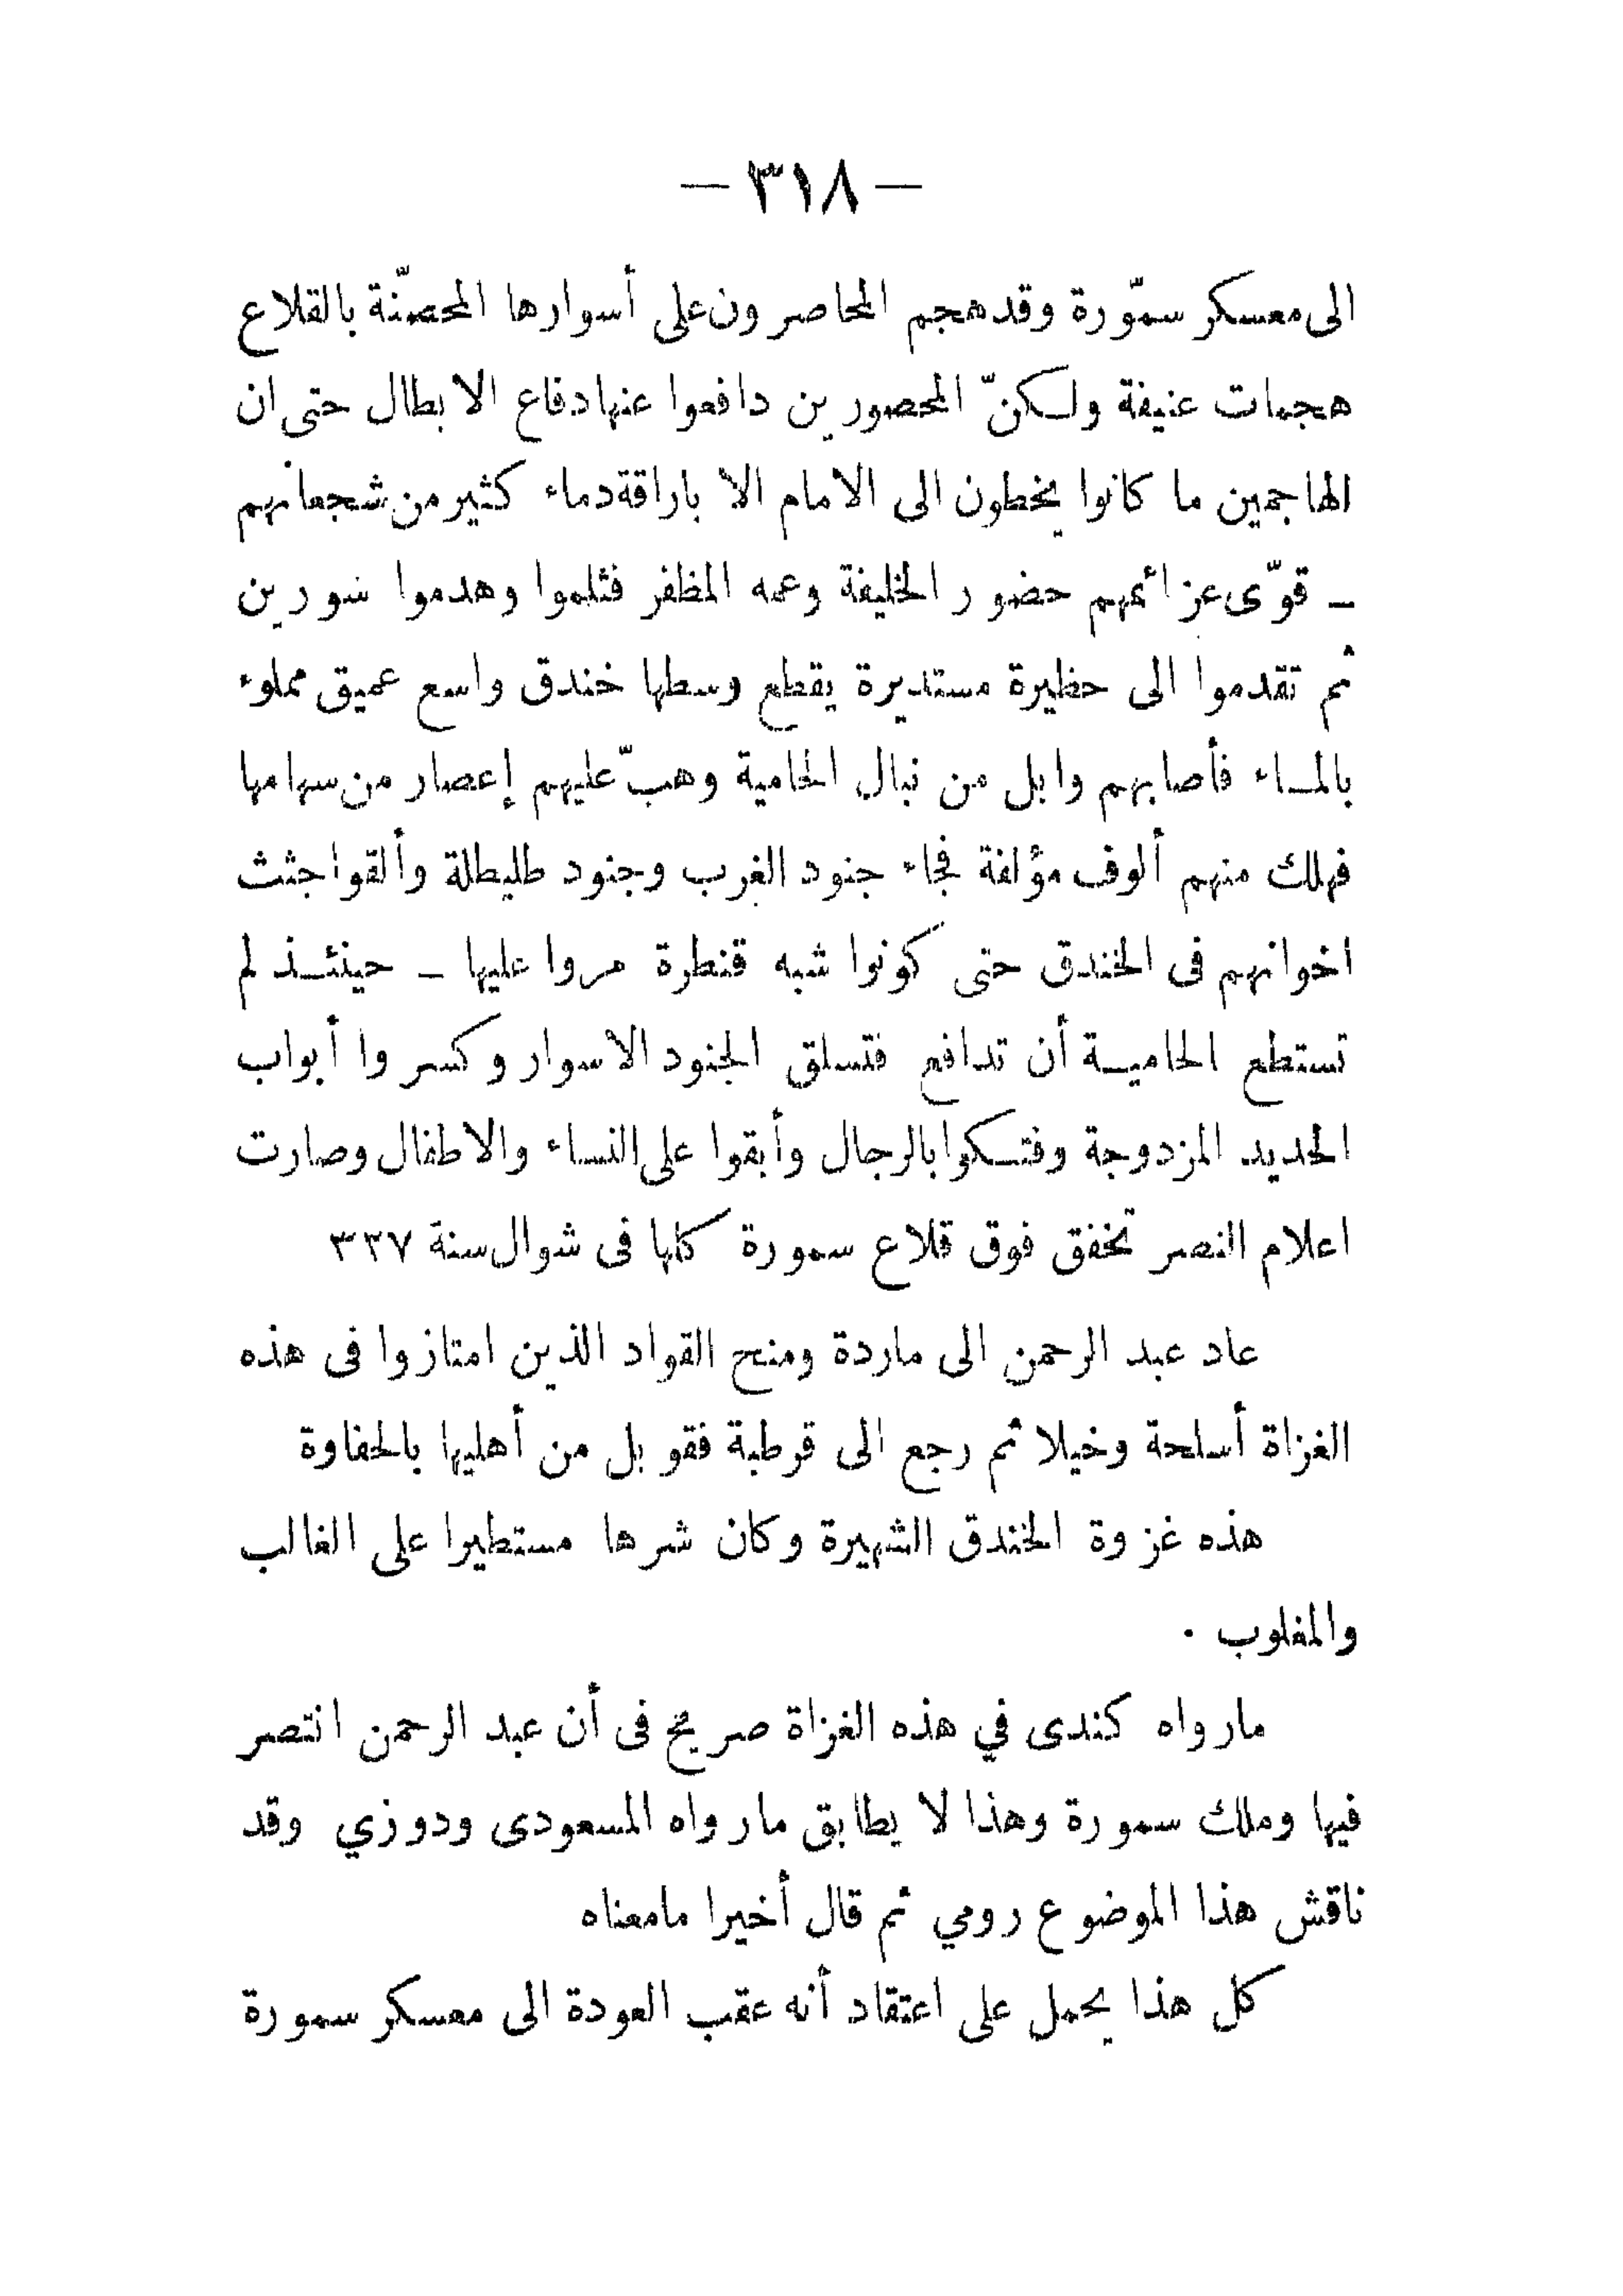 — ٣١٨ —
الى معسكر سمّورة وقد هجم المحاصرون على أسوارها المحصّنة بالقلاع
هجمات عنيفة ولكنّ المحصورين دافعوا عنها دفاع الابطال حتى ان
الهاجمين ما كانوا يخطون الى الامام الا باراقة دماء كثير من شجعانهم
ـ قوّى عزائمهم حضور الخليفة وعمه المظفر فثلموا وهدموا سورين
ثم تقدموا الى حظيرة مستديرة يقطع وسطها خندق واسع عميق مملوء
بالمـاء فأصابهم وابل من نبال الحامية وهبّ عليهم إعصار من سهامها
فهلك منهم ألوف مؤلفة فجاء جنود الغرب وجنود طليطلة وألقوا جثث
اخوانهم فى الخندق حتى كونوا شبه قنطرة مروا عليها ـ حينئـذ لم
تستطع الحاميـة أن تدافع فتسلق الجنود الاسوار وكسروا أبواب
الحديد المزدوجة وفتـكوا بالرجال وأبقوا على النساء والاطفال وصارت
اعلام النصر تخفق فوق قلاع سمورة كلها فى شوال سنة ٣٢٧
عاد عبد الرحمن الى ماردة ومنح القواد الذين امتازوا فى هذه
الغزاة أسلحة وخيلا ثم رجع الى قرطبة فقوبل من أهليها بالحفاوة
هذه غزوة الخندق الشهيرة وكان شرها مستطيرا على الغالب
والمغلوب .
مارواه كندى في هذه الغزاة صريح فى أن عبد الرحمن انتصر
فيها وملك سمورة وهذا لا يطابق مارواه المسعودى ودوزي وقد
ناقش هذا الموضوع رومي ثم قال أخيرا مامعناه
كل هذا يحمل على اعتقاد أنه عقب العودة الى معسكر سمورة